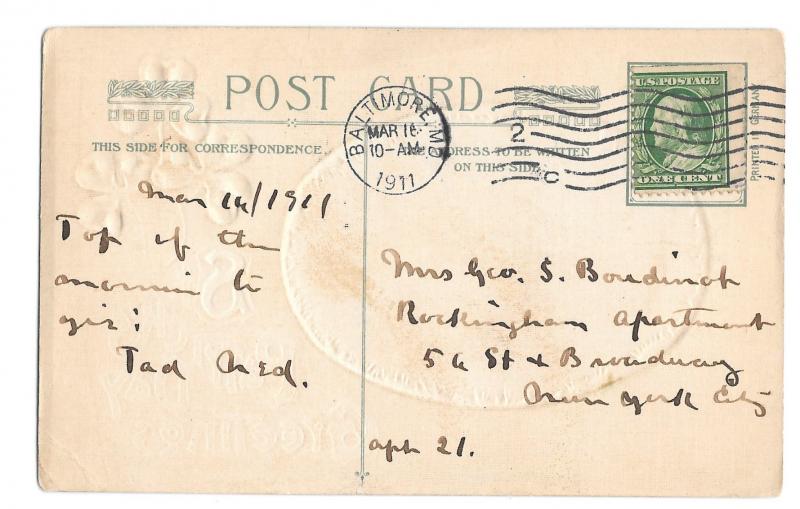 POST CARD
THIS SIDE FOR CORRESPONDENCE.
ADDRESS TO BE WRITTEN
ON THIS SIDE
BALTIMORE, MD
MAR 16
10-AM
1911
2
C
U.S. POSTAGE
ONE CENT
PRINTED IN GERMANY
Mar /1911
Top of the
mornin to
yiz!
Tad Ned.
Mrs Geo. S. Boudinot
Rockingham Apartment
St & Broadway
New York City
apt 21.